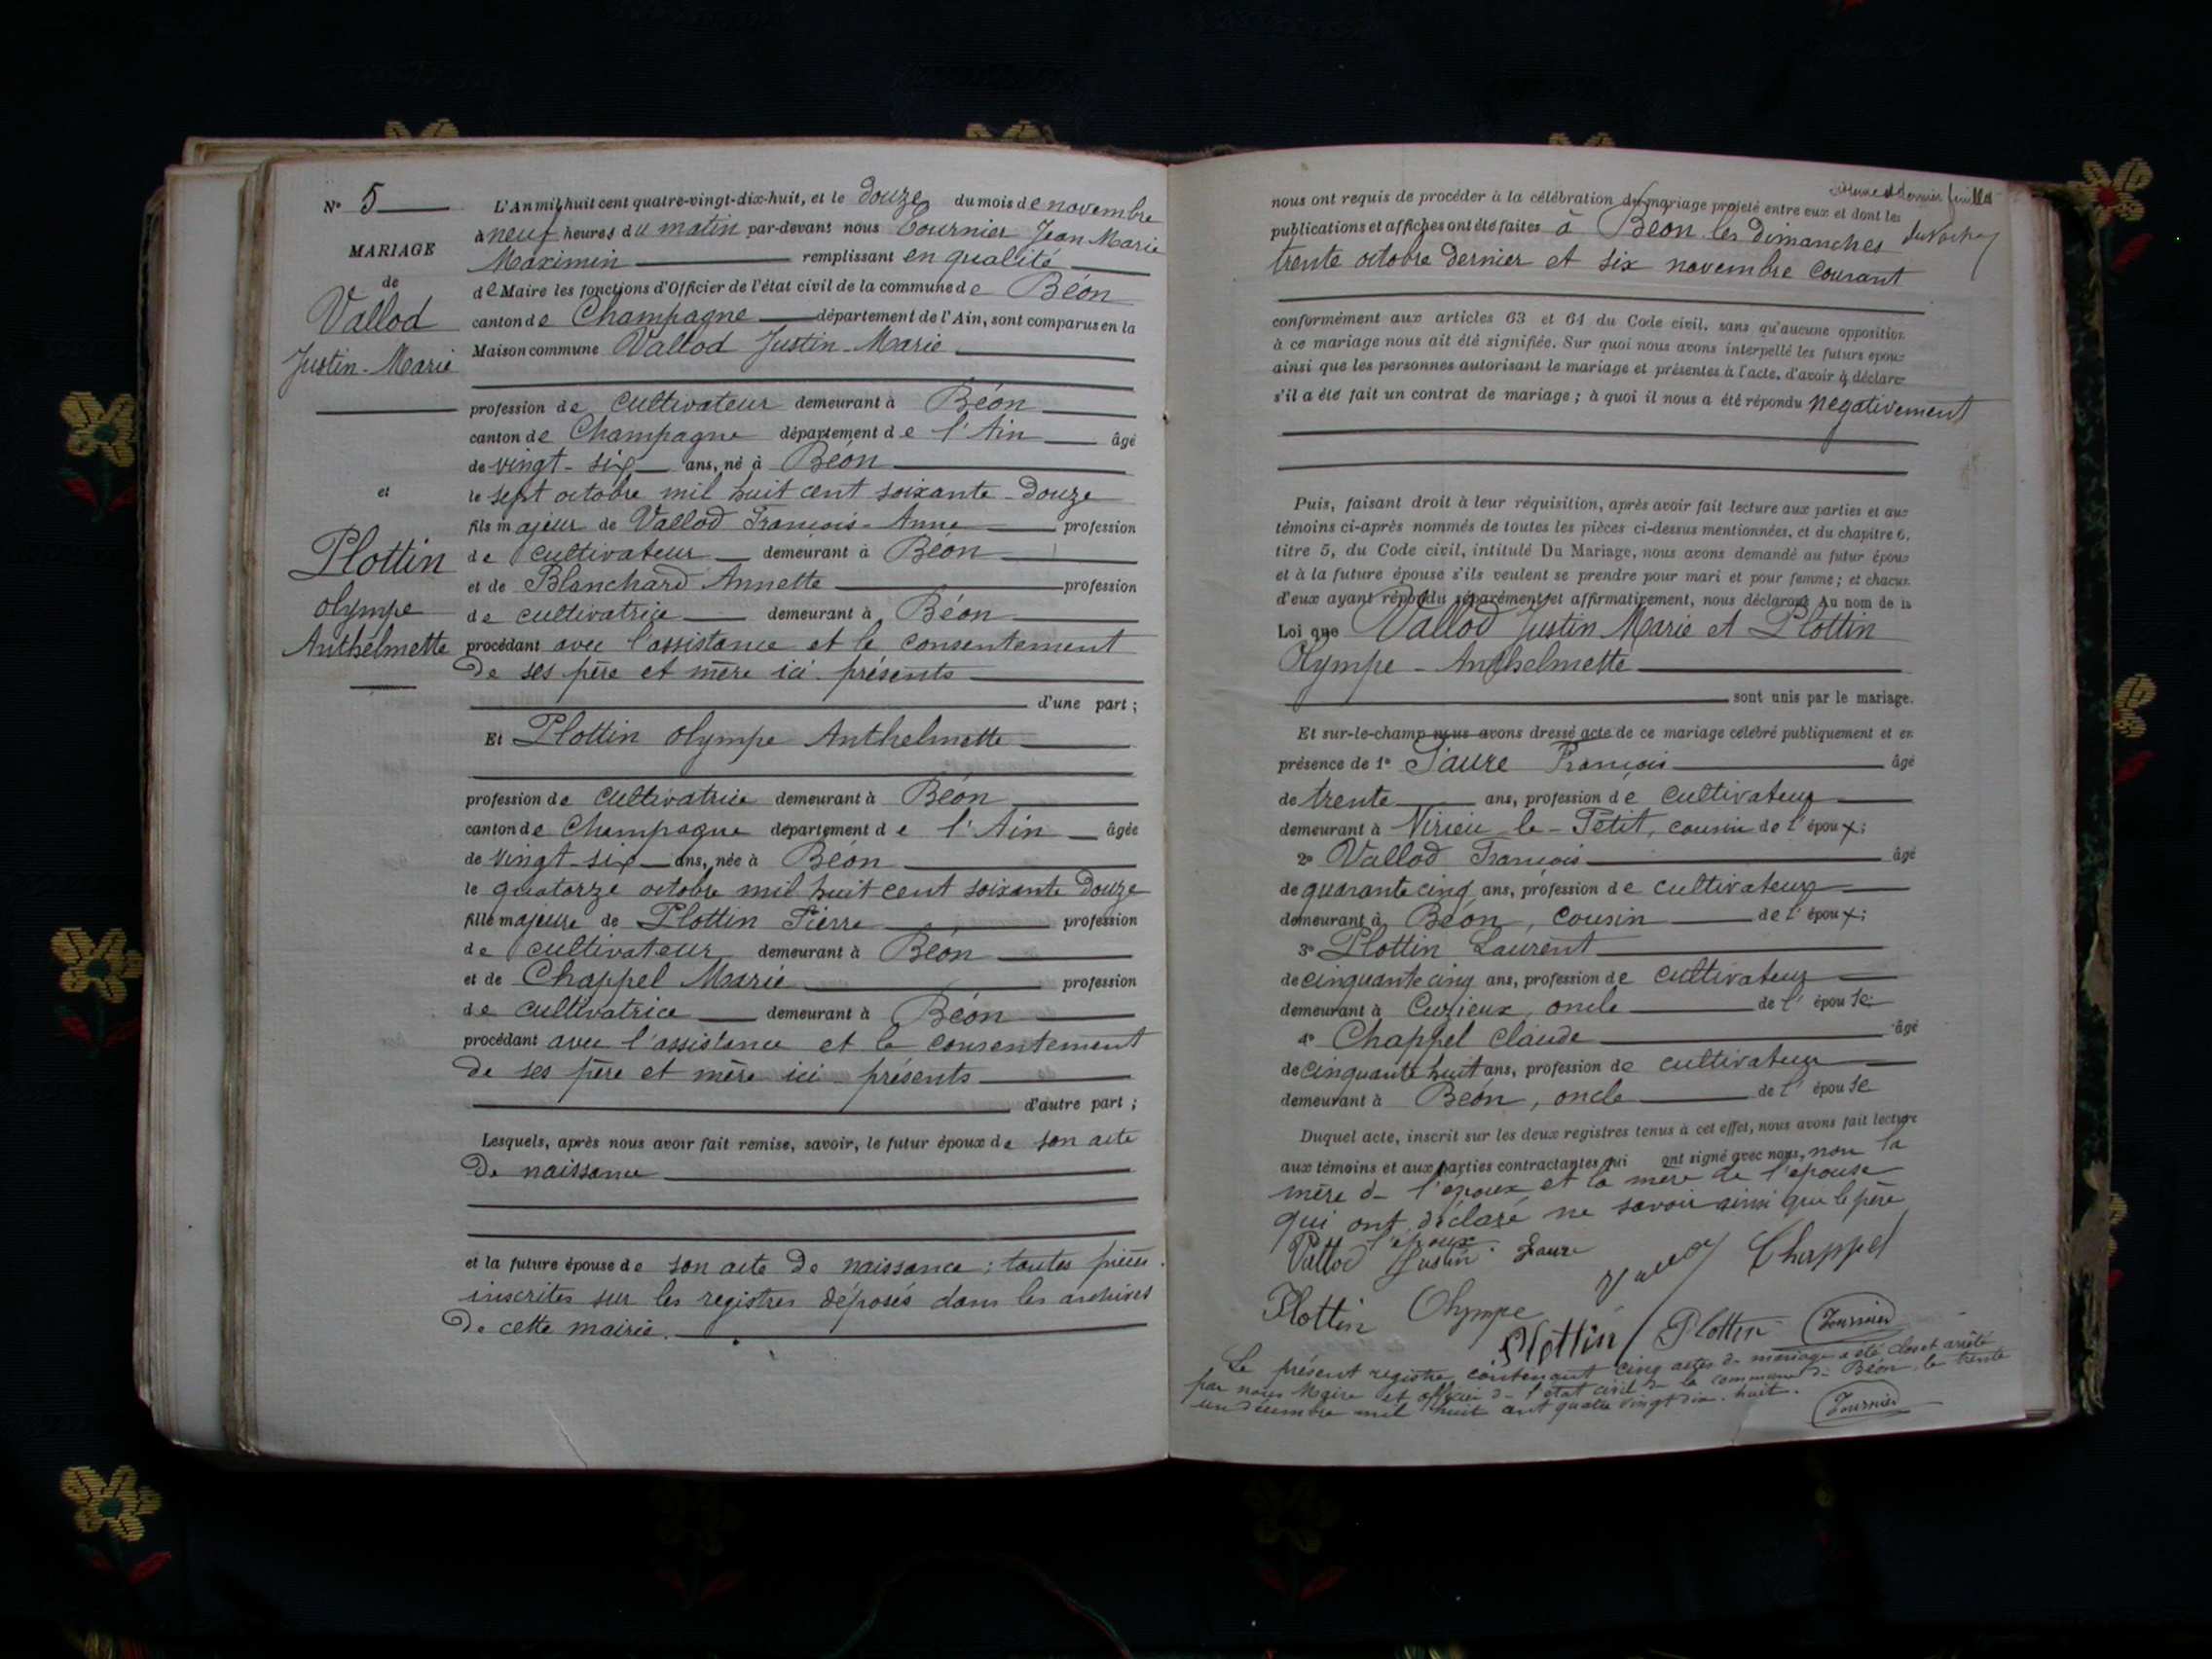 N° 5
MARIAGE
de
Vallod
Justin-Marie
et
Plottin
Olympe
Anthelmette
L'An mil huit cent quatre-vingt-dix-huit, et le douze du mois de novembre
à neuf heures du matin par-devant nous Tournier Jean Marie
Maximin remplissant en qualité
de Maire les fonctions d'Officier de l'état civil de la commune de Béon
canton de Champagne département de l'Ain, sont comparus en la
Maison commune Vallod Justin-Marie
profession de cultivateur demeurant à Béon
canton de Champagne département de l'Ain âgé
de vingt-six ans, né à Béon
le sept octobre mil huit cent soixante-douze
fils majeur de Vallod François-Anne profession
de cultivateur demeurant à Béon
et de Blanchard Annette profession
de cultivatrice demeurant à Béon
procédant avec l'assistance et le consentement
de ses père et mère ici présents
d'une part ;
Et Plottin Olympe Anthelmette
profession de cultivatrice demeurant à Béon
canton de Champagne département de l'Ain âgée
de vingt-six ans, née à Béon
le quatorze octobre mil huit cent soixante douze
fille majeure de Plottin Pierre profession
de cultivateur demeurant à Béon
et de Chappel Marie profession
de cultivatrice demeurant à Béon
procédant avec l'assistance et le consentement
de ses père et mère ici présents
d'autre part ;
Lesquels, après nous avoir fait remise, savoir, le futur époux de son acte
de naissance
et la future épouse de son acte de naissance ; toutes pièces
inscrites sur les registres déposés dans les archives
de cette mairie.
et dernier feuillet
nous ont requis de procéder à la célébration du mariage projeté entre eux et dont les
publications et affiches ont été faites à Béon les dimanches
trente octobre dernier et six novembre courant
conformément aux articles 63 et 64 du Code civil, sans qu'aucune opposition
à ce mariage nous ait été signifiée. Sur quoi nous avons interpellé les futurs époux
ainsi que les personnes autorisant le mariage et présentes à l'acte, d'avoir à déclarer
s'il a été fait un contrat de mariage ; à quoi il nous a été répondu négativement
Puis, faisant droit à leur réquisition, après avoir fait lecture aux parties et aux
témoins ci-après nommés de toutes les pièces ci-dessus mentionnées, et du chapitre 6,
titre 5, du Code civil, intitulé Du Mariage, nous avons demandé au futur époux
et à la future épouse s'ils veulent se prendre pour mari et pour femme ; et chacun
d'eux ayant répondu séparément et affirmativement, nous déclarons Au nom de la
Loi que Vallod Justin Marie et Plottin
Olympe-Anthelmette
sont unis par le mariage.
Et sur-le-champ nous avons dressé acte de ce mariage célébré publiquement et en
présence de 1° Faure François âgé
de trente ans, profession de cultivateur
demeurant à Virieu-le-Petit, cousin de l'époux ;
2° Vallod François âgé
de quarante cinq ans, profession de cultivateur
demeurant à Béon, cousin de l'époux ;
3° Plottin Laurent
de cinquante cinq ans, profession de cultivateur
demeurant à Cuzieux, oncle de l'épouse
4° Chappel Claude âgé
de cinquante huit ans, profession de cultivateur
demeurant à Béon, oncle de l'épouse
Duquel acte, inscrit sur les deux registres tenus à cet effet, nous avons fait lecture
aux témoins et aux parties contractantes qui ont signé avec nous, non la
mère de l'époux et la mère de l'épouse
qui ont déclaré ne savoir ainsi que le père
l'époux
Vallod Justin Faure Chappel
Plottin Olympe
Plottin Plottin Tournier
Le présent registre contenant cinq actes de mariage a été clos et arrêté
par nous Maire et officier de l'état civil de la commune de Béon, le trente
un décembre mil huit cent quatre vingt dix-huit.
Tournier